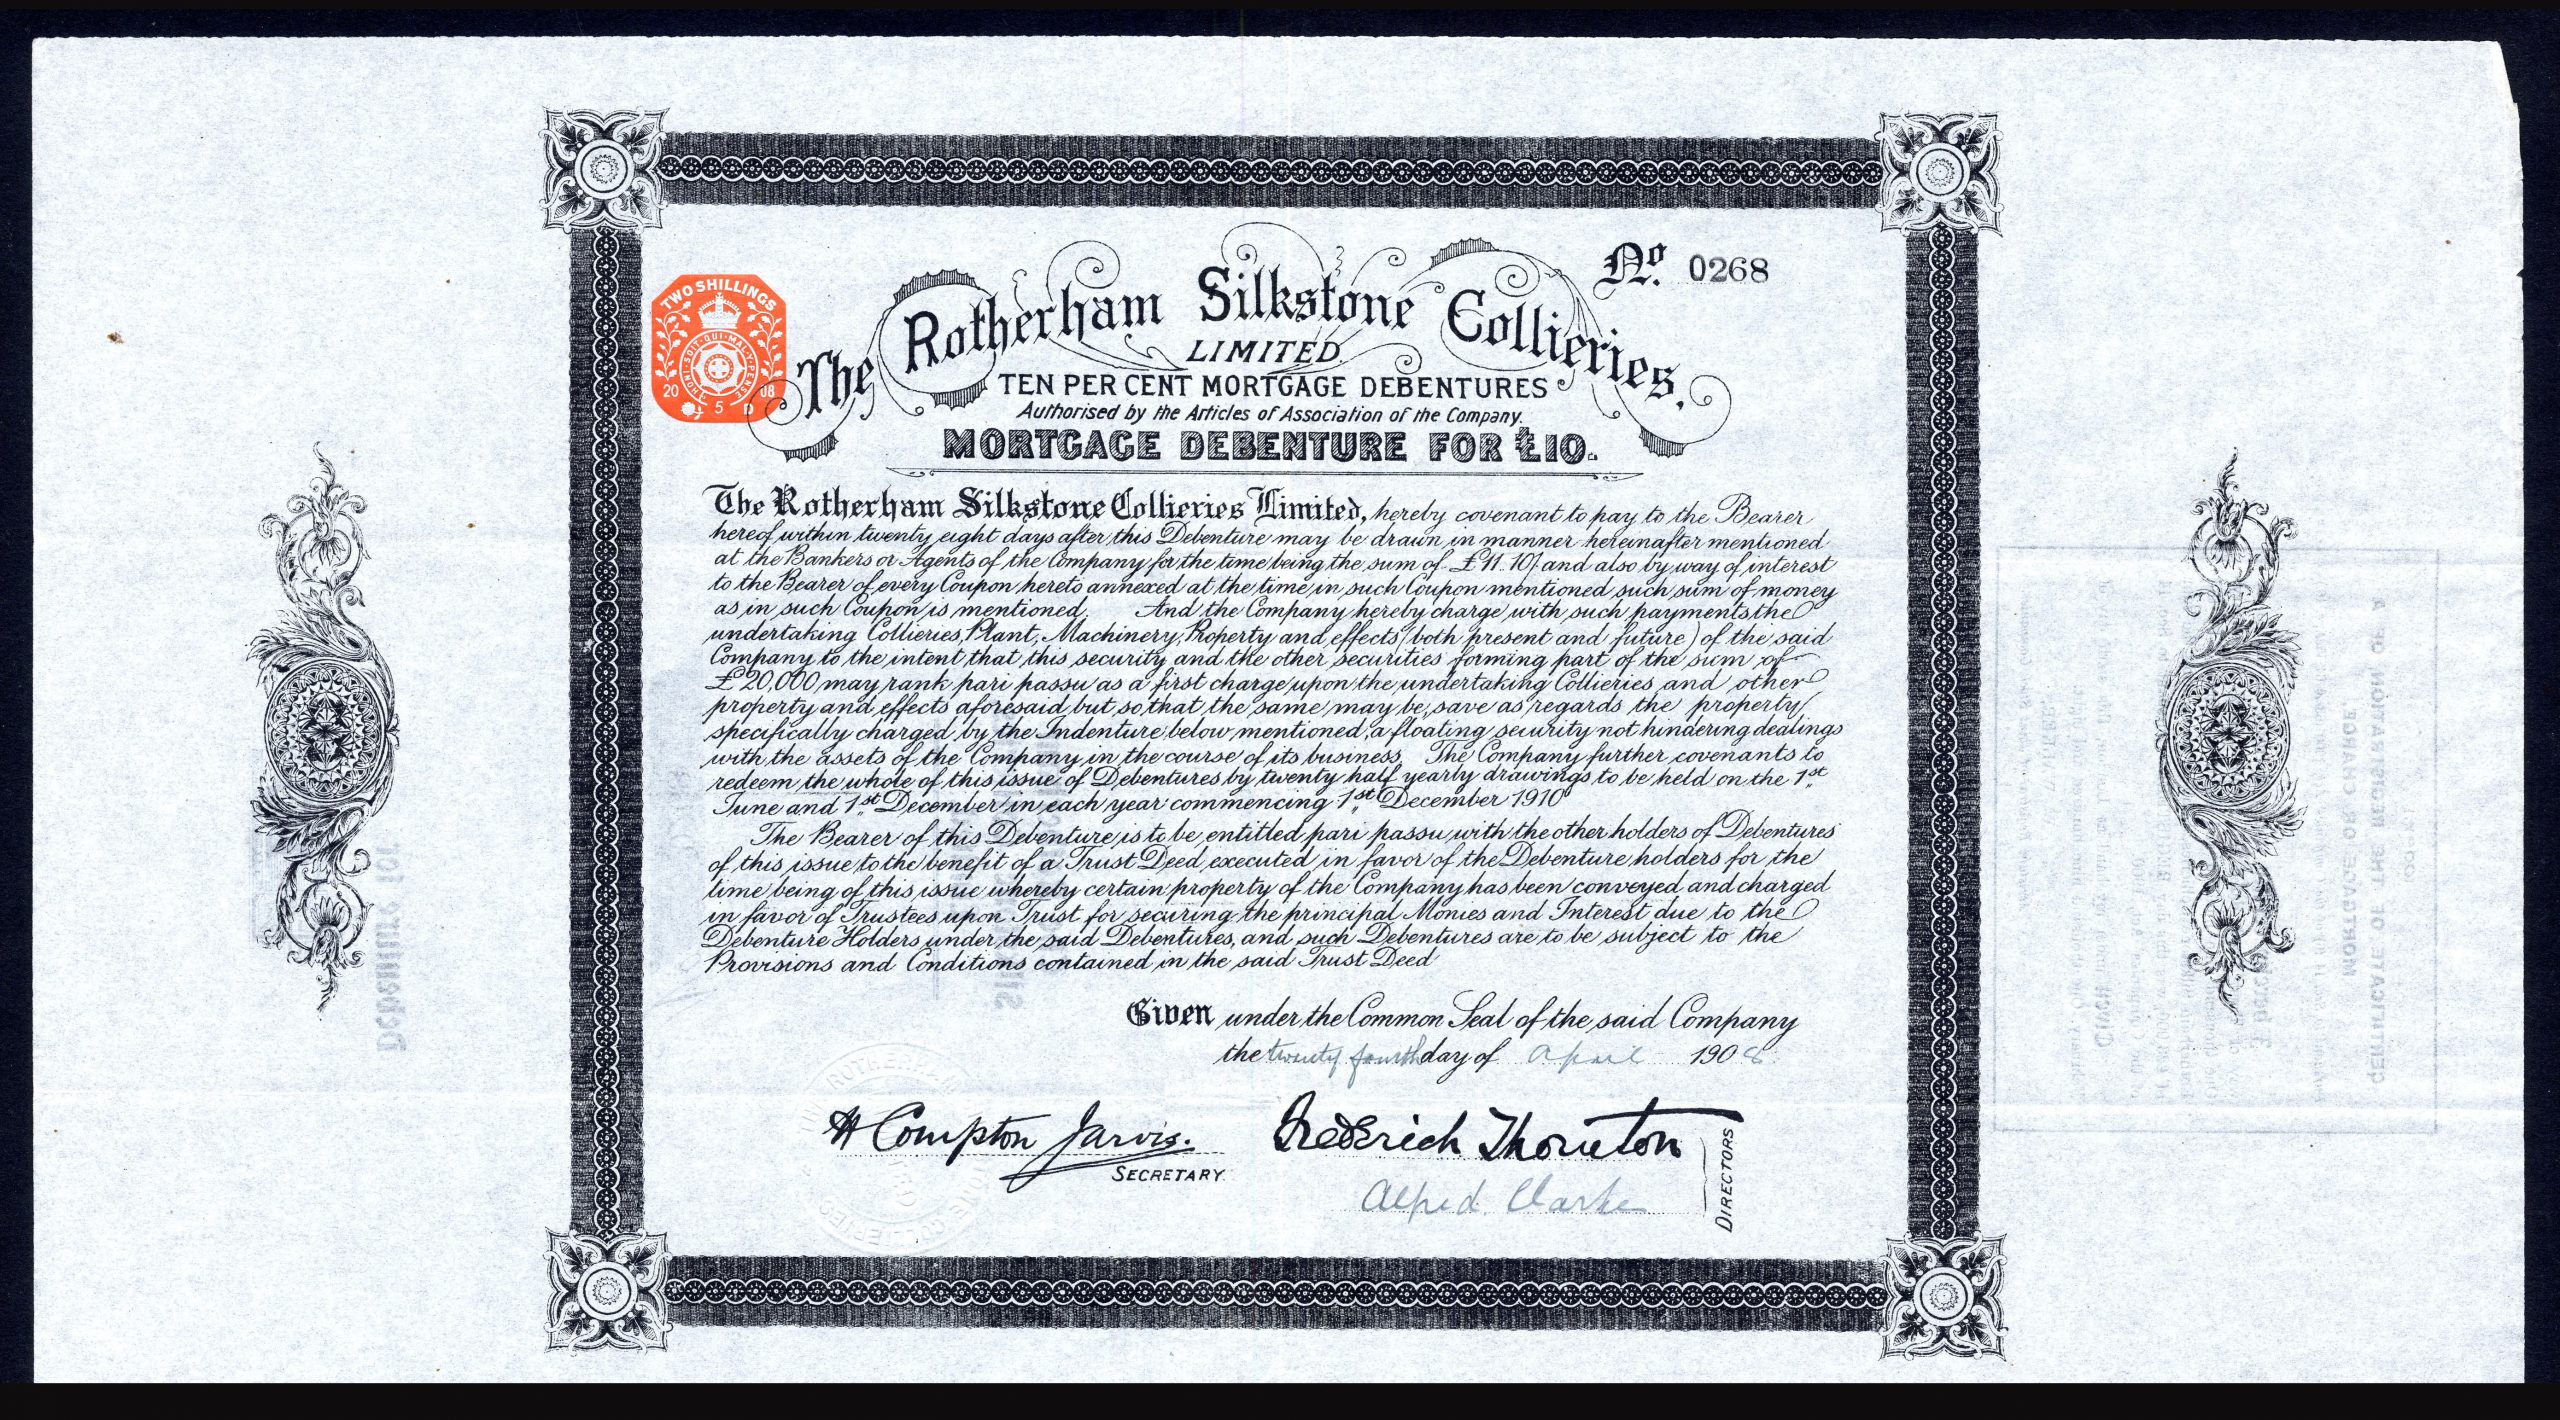 No. 0268
TWO SHILLINGS
HONI·SOIT·QUI·MAL·Y·PENSE
20 08
5 D
The Rotherham Silkstone Collieries.
LIMITED.
TEN PER CENT MORTGAGE DEBENTURES
Authorised by the Articles of Association of the Company.
MORTGAGE DEBENTURE FOR £10.
The Rotherham Silkstone Collieries Limited, hereby covenant to pay to the Bearer
hereof within twenty eight days after this Debenture may be drawn in manner hereinafter mentioned
at the Bankers or Agents of the Company for the time being the sum of £11.10/- and also by way of interest
to the Bearer of every Coupon hereto annexed at the time in such Coupon mentioned such sum of money
as in such Coupon is mentioned. And the Company hereby charge with such payments the
undertaking Collieries, Plant, Machinery, Property and effects (both present and future) of the said
Company to the intent that this security and the other securities forming part of the sum of
£20,000 may rank pari passu as a first charge upon the undertaking Collieries and other
property and effects aforesaid but so that the same may be, save as regards the property
specifically charged by the Indenture below mentioned, a floating security not hindering dealings
with the assets of the Company in the course of its business. The Company further covenants to
redeem the whole of this issue of Debentures by twenty half yearly drawings to be held on the 1st
June and 1st December in each year commencing 1st December 1910
The Bearer of this Debenture is to be entitled pari passu with the other holders of Debentures
of this issue to the benefit of a Trust Deed executed in favor of the Debenture holders for the
time being of this issue whereby certain property of the Company has been conveyed and charged
in favor of Trustees upon Trust for securing the principal Monies and Interest due to the
Debenture Holders under the said Debentures, and such Debentures are to be subject to the
Provisions and Conditions contained in the said Trust Deed
Given under the Common Seal of the said Company
the twenty fourth day of April 1908
H Compton Jarvis.
SECRETARY.
Frederick Thornton
Alfred Clarke
DIRECTORS